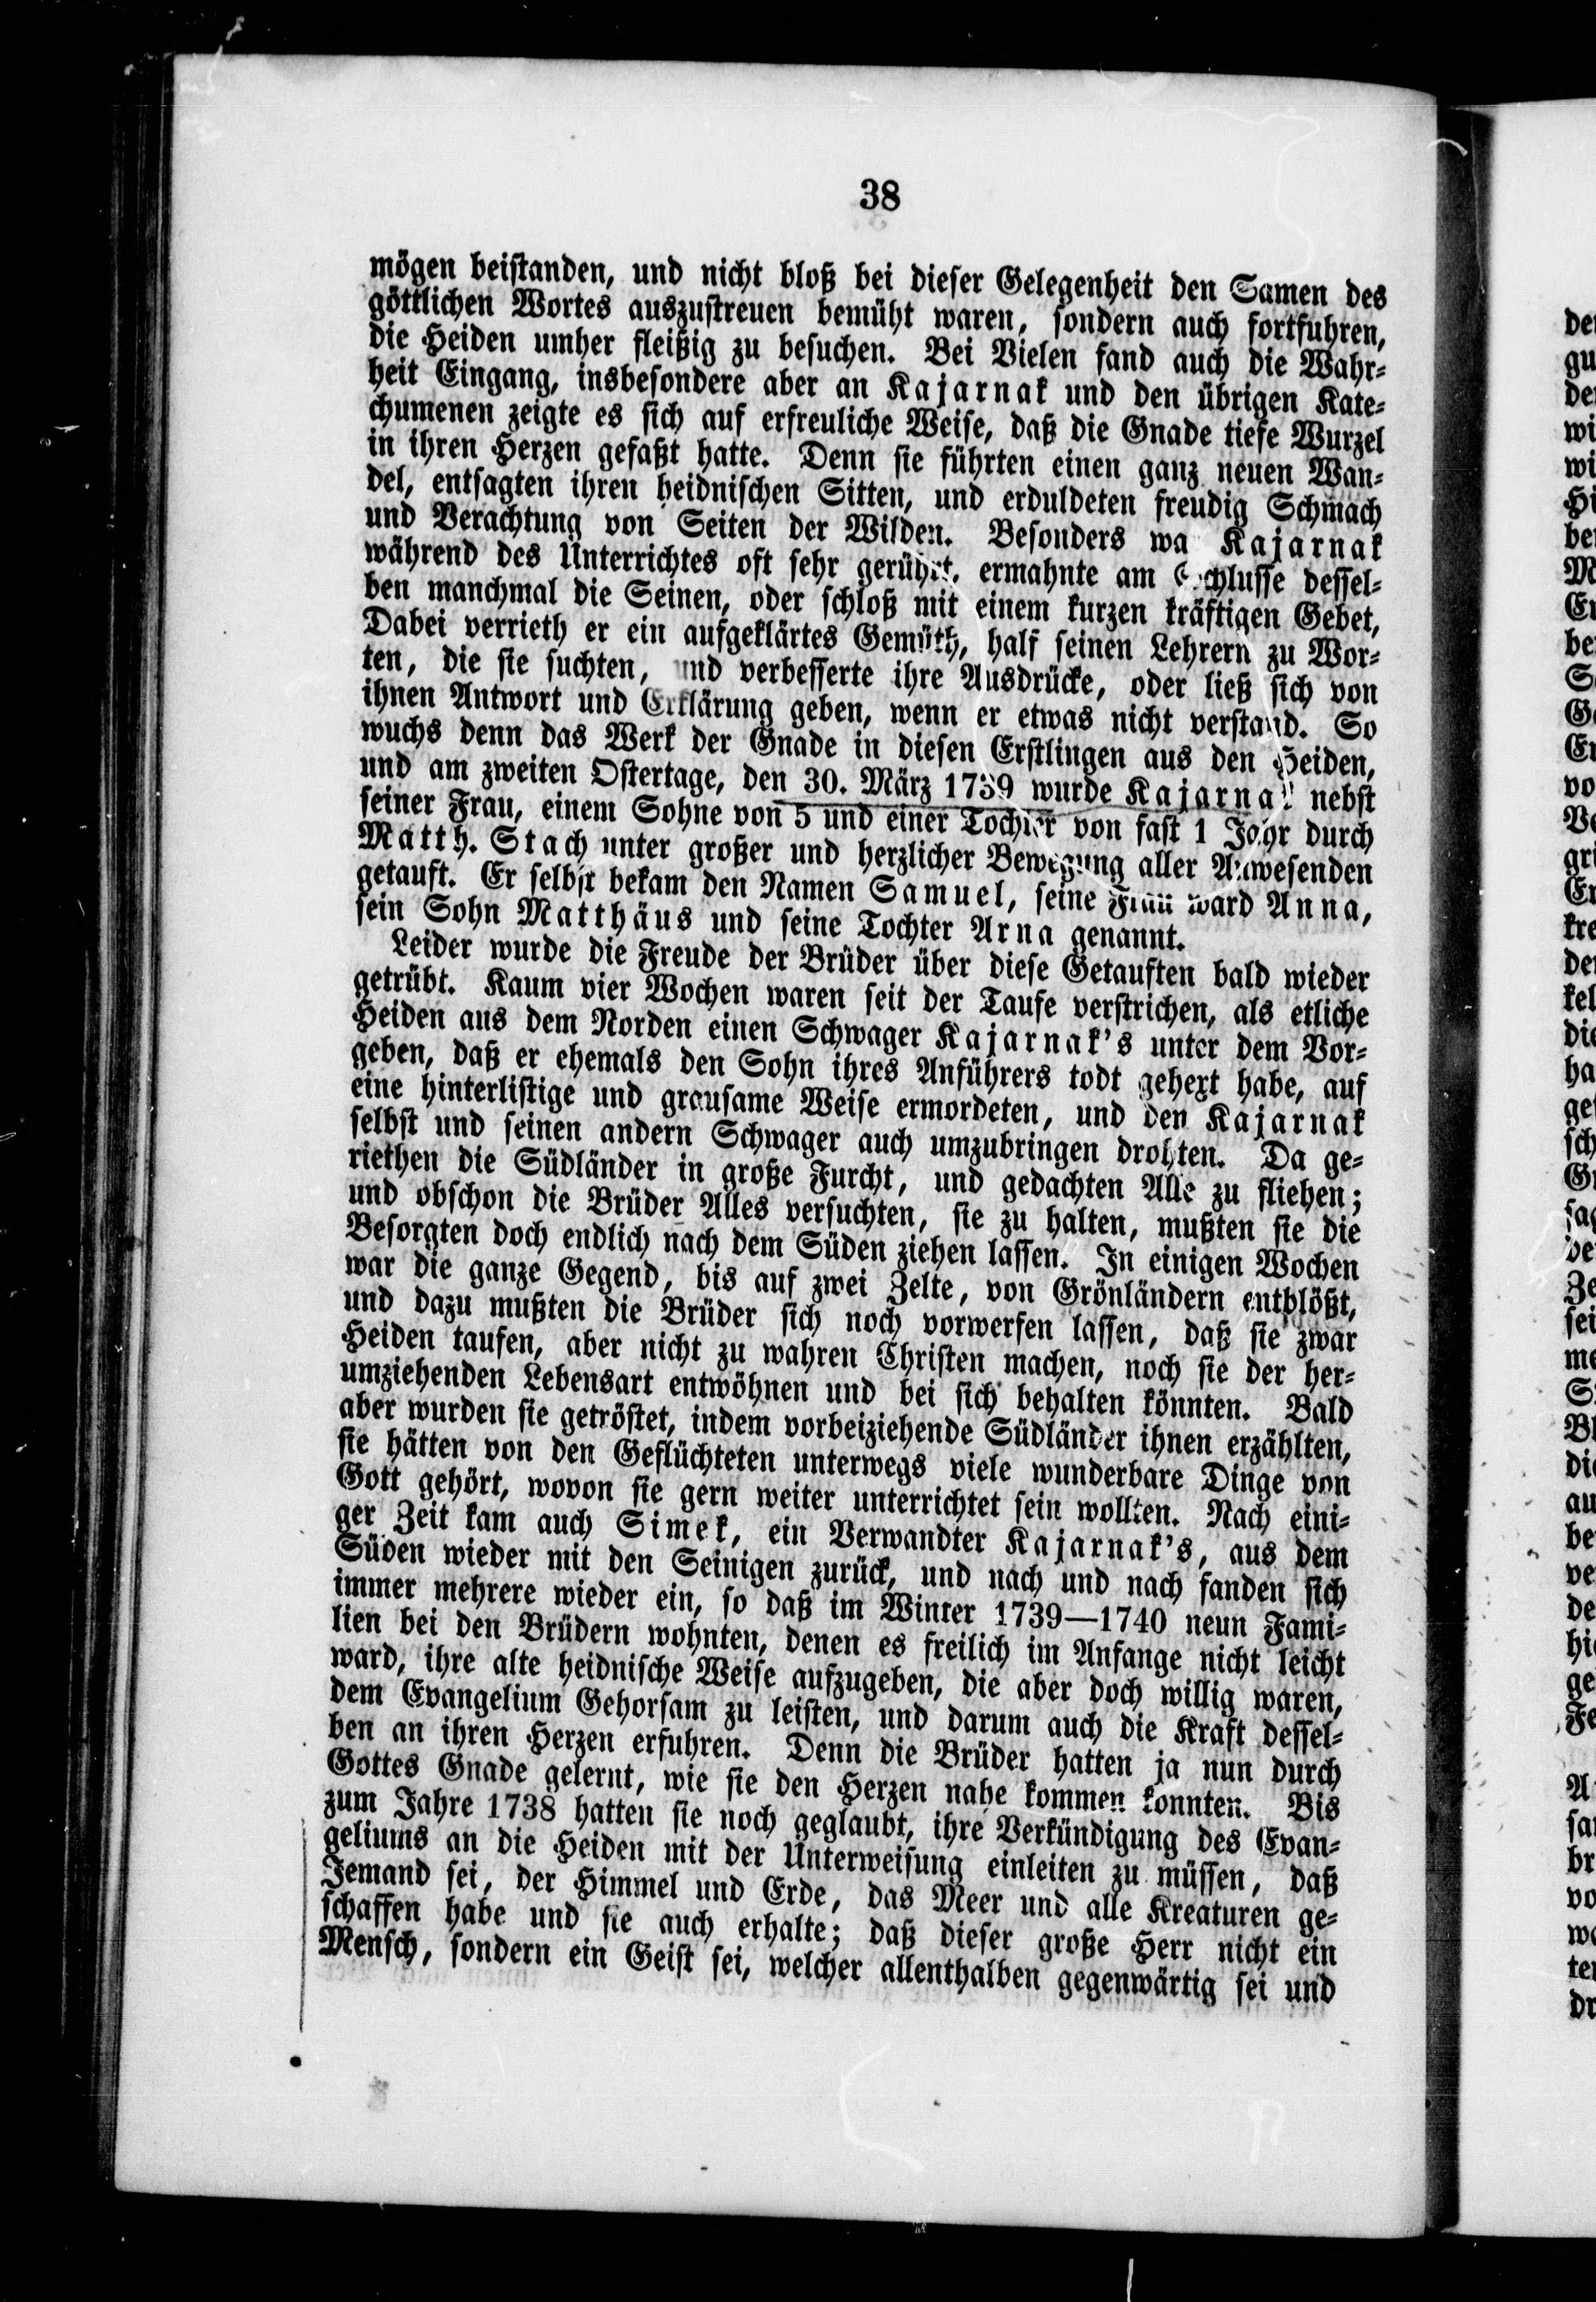 38
mögen beistanden, und nicht bloß bei dieser Gelegenheit den Samen des
göttlichen Wortes auszustreuen bemüht waren, sondern auch fortfuhren,
die Heiden umher fleißig zu besuchen. Bei Vielen fand auch die Wahr-
heit Eingang, insbesondere aber an Kajarnak und den übrigen Kate-
chumenen zeigte es sich auf erfreuliche Weise, daß die Gnade tiefe Wurzel
in ihren Herzen gefaßt hatte. Denn sie führten einen ganz neuen Wan-
del, entsagten ihren heidnischen Sitten, und erduldeten freudig Schmach
und Verachtung von Seiten der Wilden. Besonders wa Kajarnak
während des Unterrichtes oft sehr gerührt, ermahnte am Schlusse dessel-
ben manchmal die Seinen, oder schloß mit einem kurzen kräftigen Gebet,
Dabei verrieth er ein aufgeklärtes Gemüth, half seinen Lehrern zu Wor-
ten, die sie suchten, und verbesserte ihre Ausdrücke, oder ließ sich von
ihnen Antwort und Erklärung geben, wenn er etwas nicht verstand. So
wuchs denn das Werk der Gnade in diesen Erstlingen aus den Heiden,
und am zweiten Ostertage, den 30. März 1739 wurde Kajarnak nebst
seiner Frau, einem Sohne von 5 und einer Tochter von fast 1 Jahr durch
Matth. Stach unter großer und herzlicher Bewegung aller Anwesenden
getauft. Er selbst bekam den Namen Samuel, seine Frau ward Anna,
sein Sohn Matthäus und seine Tochter Arna genannt.
Leider wurde die Freude der Brüder über diese Getauften bald wieder
getrübt. Kaum vier Wochen waren seit der Taufe verstrichen, als etliche
Heiden aus dem Norden einen Schwager Kajarnak's unter dem Vor-
geben, daß er ehemals den Sohn ihres Anführers todt gehext habe, auf
eine hinterlistige und grausame Weise ermordeten, und den Kajarnak
selbst und seinen andern Schwager auch umzubringen drohten. Da ge-
riethen die Südländer in große Furcht, und gedachten Alle zu fliehen;
und obschon die Brüder Alles versuchten, sie zu halten, mußten sie die
Besorgten doch endlich nach dem Süden ziehen lassen. In einigen Wochen
war die ganze Gegend, bis auf zwei Zelte, von Grönländern entblößt,
und dazu mußten die Brüder sich noch vorwerfen lassen, daß sie zwar
Heiden taufen, aber nicht zu wahren Christen machen, noch sie der her-
umziehenden Lebensart entwöhnen und bei sich behalten könnten. Bald
aber wurden sie getröstet, indem vorbeiziehende Südländer ihnen erzählten,
sie hätten von den Geflüchteten unterwegs viele wunderbare Dinge von
Gott gehört, wovon sie gern weiter unterrichtet sein wollten. Nach eini-
ger Zeit kam auch Simek, ein Verwandter Kajarnak's, aus dem
Süden wieder mit den Seinigen zurück, und nach und nach fanden sich
immer mehrere wieder ein, so daß im Winter 1739—1740 neun Fami-
lien bei den Brüdern wohnten, denen es freilich im Anfange nicht leicht
ward, ihre alte heidnische Weise aufzugeben, die aber doch willig waren,
dem Evangelium Gehorsam zu leisten, und darum auch die Kraft dessel-
ben an ihren Herzen erfuhren. Denn die Brüder hatten ja nun durch
Gottes Gnade gelernt, wie sie den Herzen nahe kommen konnten. Bis
zum Jahre 1738 hatten sie noch geglaubt, ihre Verkündigung des Evan-
geliums an die Heiden mit der Unterweisung einleiten zu müssen, daß
Jemand sei, der Himmel und Erde, das Meer und alle Kreaturen ge-
schaffen habe und sie auch erhalte; daß dieser große Herr nicht ein
Mensch, sondern ein Geist sei, welcher allenthalben gegenwärtig sei und